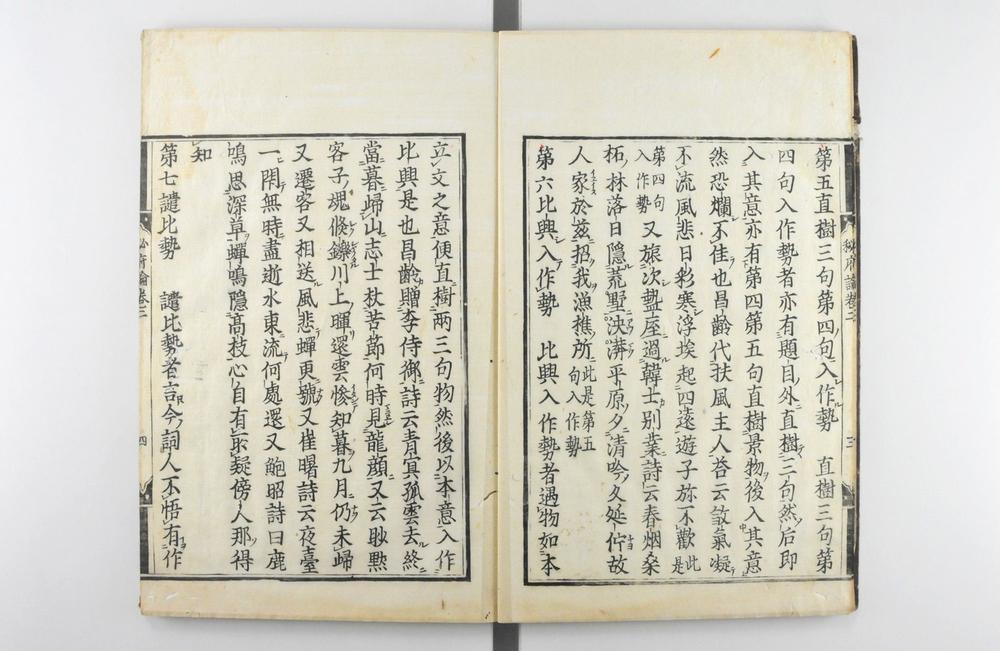 第五直樹三句第四句入作勢　直樹三句第
四句入作勢者亦有題目外直樹三句然后即
入其意亦有第四第五句直樹景物後入其意
然恐爛不佳也昌齡代扶風主人荅云敛氣凝
不流風悲日彩寒浮埃起四遠遊子弥不歡此是
第四句入作勢又旅次盩座過韓士別業詩云春烟桑
柘林落日隱荒墅泱漭平原夕清吟久延佇故
人家於茲招我漁樵所此是第五句入作勢
第六比興入作勢　比興入作勢者遇物如本
立文之意便直樹兩三句物然後以本意入作
比興是也昌齡贈李侍御詩云青冥孤雲去終
當暮歸山志士杖苦節何時見龍顔又云眇黙
客子魂倏鑠川上暉還雲慘知暮九月仍未歸
又遷客又相送風悲蟬更號又崔曙詩云夜臺
一閇無時盡逝水東流何處還又鮑昭詩曰鹿
鳴思深草蟬鳴隱高枝心自有所疑傍人那得
知
第七謎比勢　謎比勢者言今詞人不悟有作
秘府論卷三
三
秘府論卷三
四